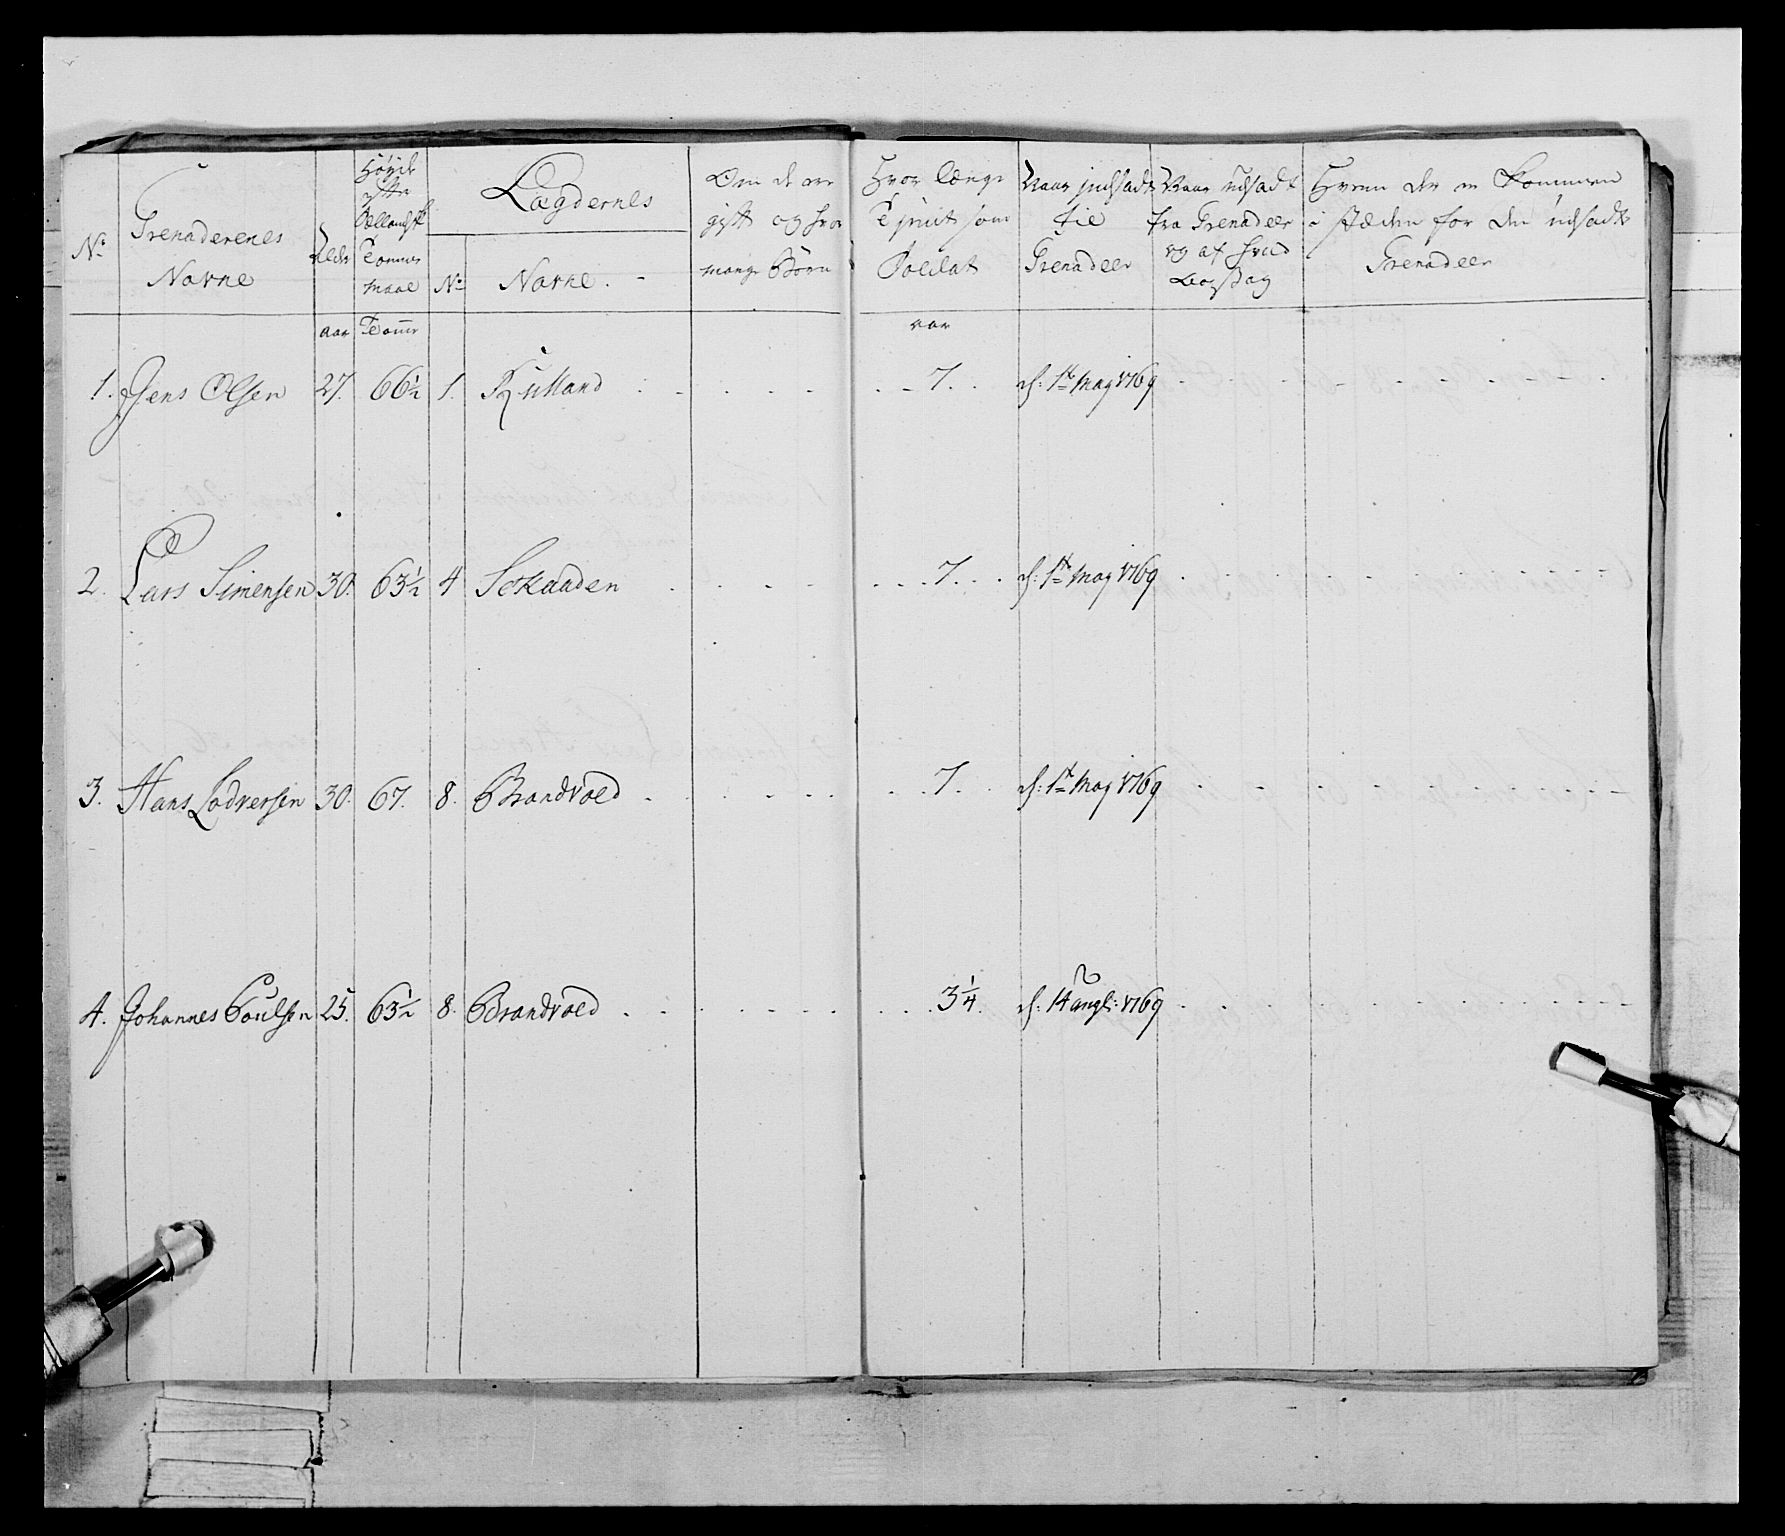 No
Grenaderenes
Navne
Alder
Høyde
efter
Sællandsk
Tomme
maal
Lægdernes
No
Navne.
Om de ere
gift og hvor
mange Børn
Hvor længe
Tient som
Soldat
Naar indsadt
til
Grenadeer
Naar udsadt
fra Grenadeer
og af hvad
aarsag
Hvem der er kommen
i stæden for den udsadte
Grenadeer
aar Tomr
aar
1. Jens Olsen 27. 66½ 1. 7. d: 1te May 1769
2. Lars Simensen 30. 63½ 4 Sckaaden 7. d: 1te May 1769
3. Hans Ladversen 30. 67. 8. Brandvold 7. d: 1te May 1769
4. Johannes Poulsen 25. 63½ 8. Brandvold 3¼. d: 14 augt: 1769